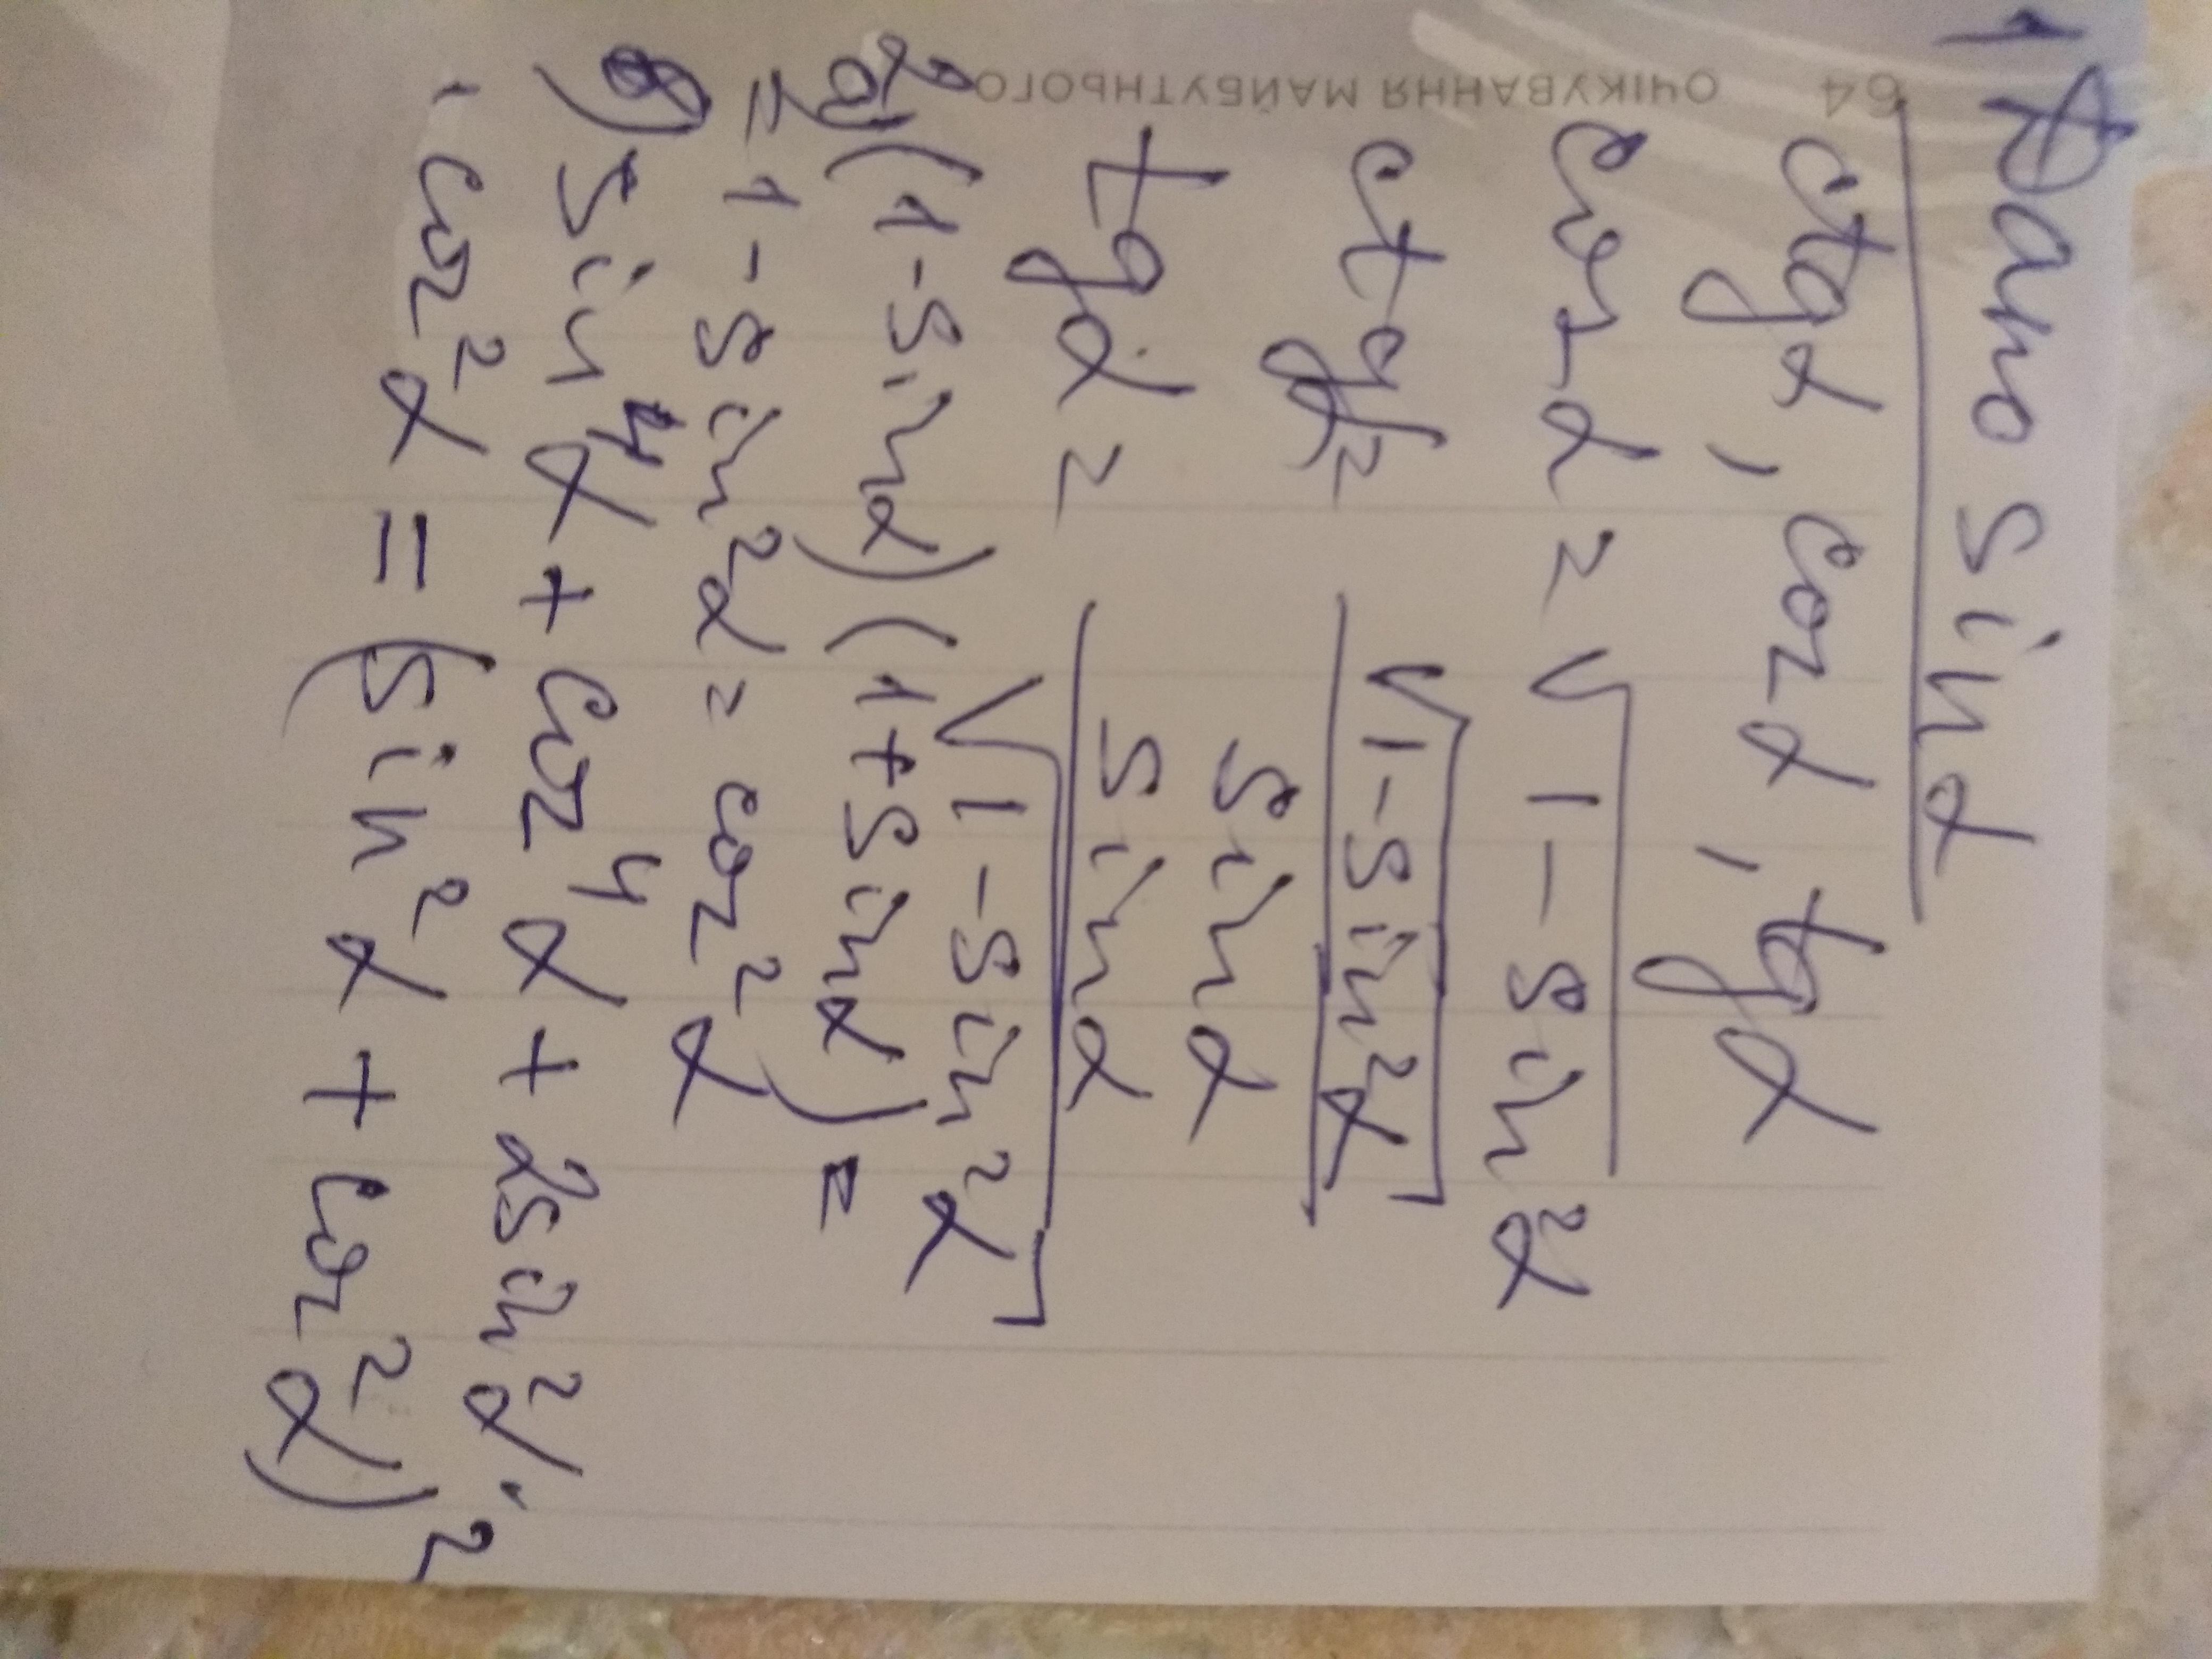 64 ОЧІКУВАННЯ МАЙБУТНЬОГО
1 Дано sin α
ctg α, cos α, tg α
cos α = √1 - sin²α
ctg α = √1 - sin²α / sin α
tg α = sin α / √1 - sin²α
2 а) (1 - sin α)(1 + sin α) =
= 1 - sin²α = cos²α
б) sin⁴α + cos⁴α + 2sin²α ·
· cos²α = (sin²α + cos²α)²